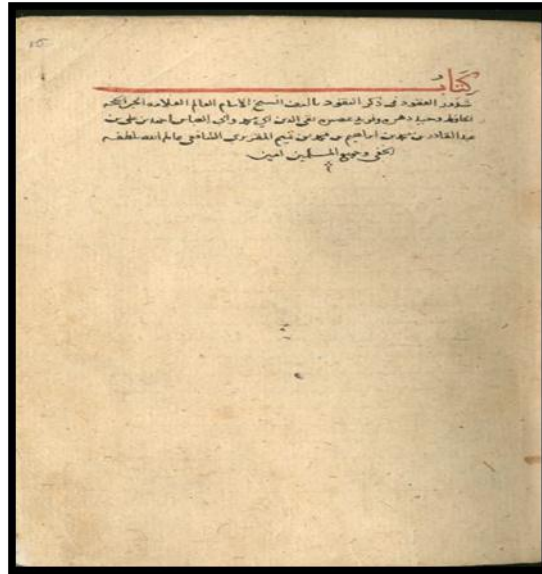 كتاب
شذور العقود في ذكر النقود تأليف الشيخ الامام العالم العلامه الحبر
الحافظ وحيد دهره وفريد عصره تقي الدين ابي محمد وابي العباس احمد بن علي بن
عبد القادر بن محمد بن ابراهيم بن محمد بن تميم المقريزي الشافعي عامله الله بلطفه
الخفي وجميع المسلمين امين